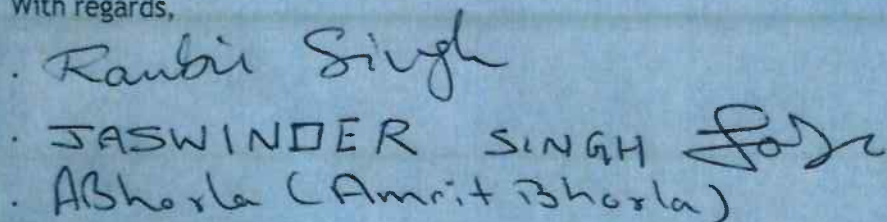 With regards,
. Ranbir Singh
. JASWINDER SINGH
. ABhorla (Amrit Bhorla)